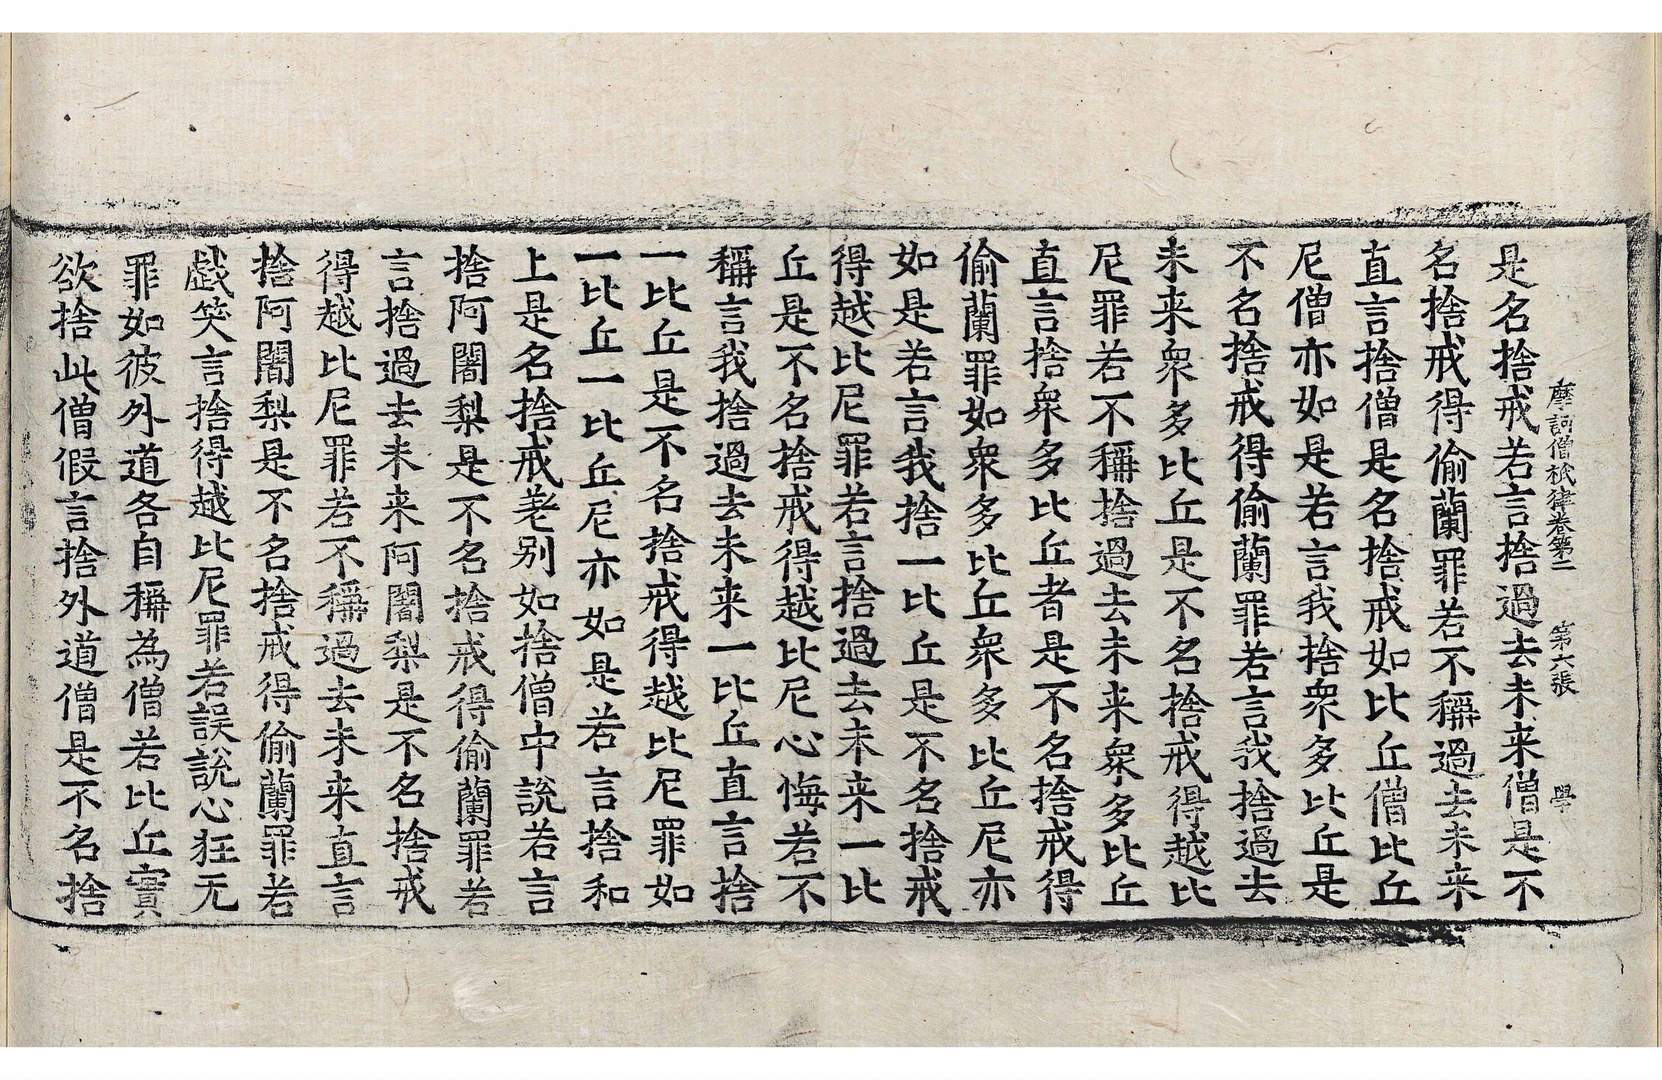 摩訶僧祇律卷第二 第六張 學
是名捨戒若言捨過去未来僧是不
名捨戒得偷蘭罪若不稱過去未来
直言捨僧是名捨戒如比丘僧比丘
尼僧亦如是若言我捨衆多比丘是
不名捨戒得偷蘭罪若言我捨過去
未来衆多比丘是不名捨戒得越比
尼罪若不稱捨過去未来衆多比丘
直言捨衆多比丘者是不名捨戒得
偷蘭罪如衆多比丘衆多比丘尼亦
如是若言我捨一比丘是不名捨戒
得越比尼罪若言捨過去未来一比
丘是不名捨戒得越比尼心悔若不
稱言我捨過去未来一比丘直言捨
一比丘是不名捨戒得越比尼罪如
一比丘一比丘尼亦如是若言捨和
上是名捨戒差别如捨僧中說若言
捨阿闍梨是不名捨戒得偷蘭罪若
言捨過去未来阿闍梨是不名捨戒
得越比尼罪若不稱過去未来直言
捨阿闍梨是不名捨戒得偷蘭罪若
戯笑言捨得越比尼罪若誤說心狂无
罪如彼外道各自稱為僧若比丘實
欲捨此僧假言捨外道僧是不名捨